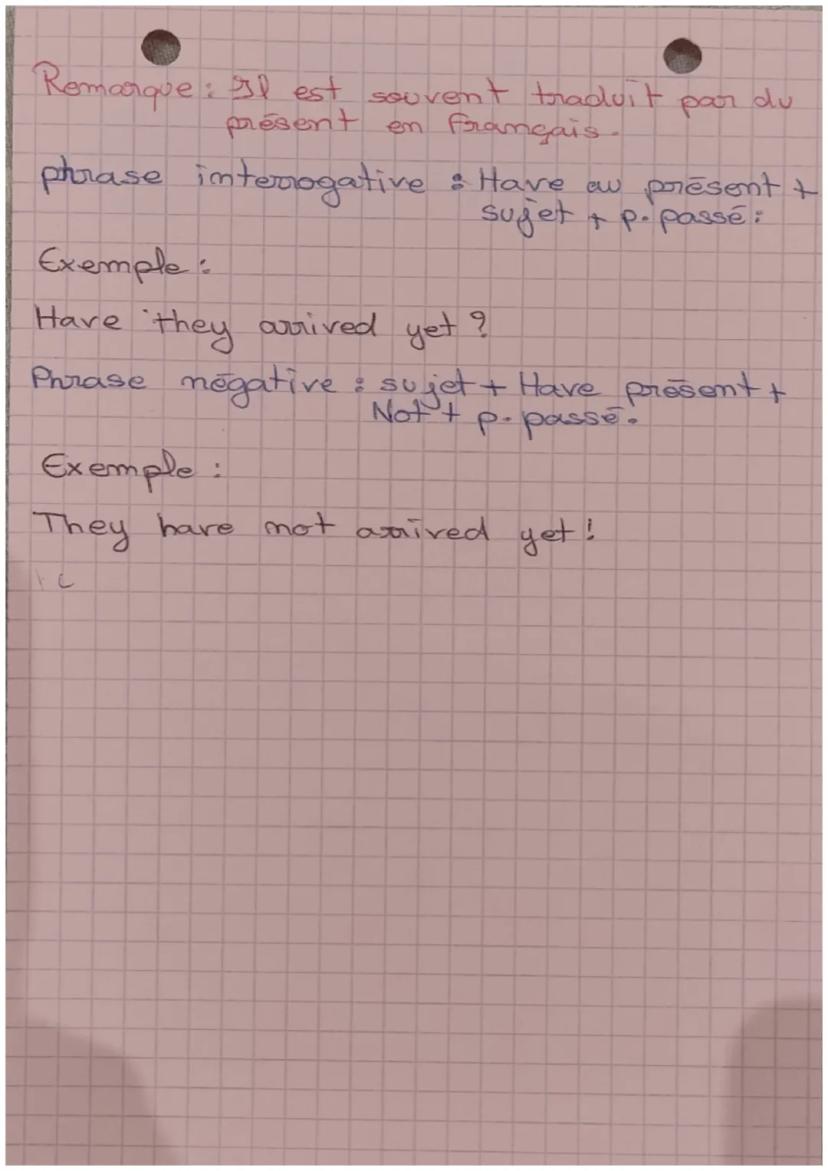 Remarque : Il est souvent traduit par du
présent en français.
phrase interrogative : Have au présent +
sujet + p. passé :
Exemple :
Have they arrived yet ?
Phrase négative : sujet + Have présent +
Not + p. passé.
Exemple :
They have not arrived yet !